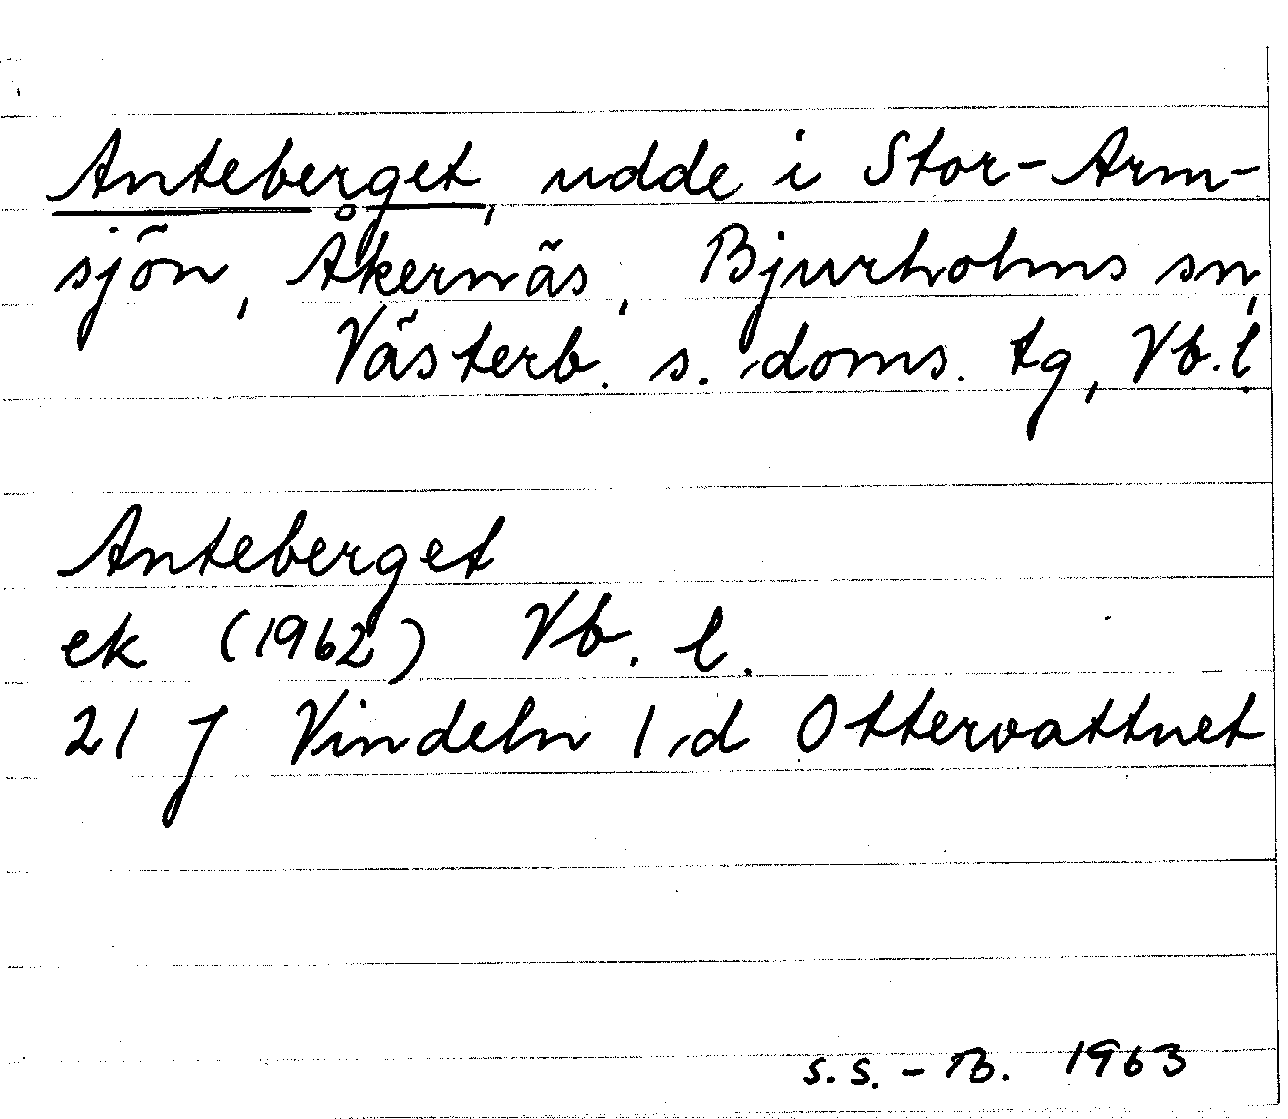 Anteberget, udde i Stor-Arm-
sjön, Åkernäs, Bjurholms sn,
Västerb. s. doms. tg, Vb. l.
Anteberget
ek (1962) Vb. l.
21 J Vindeln 1 d Ottervattnet
S.S.-B. 1963